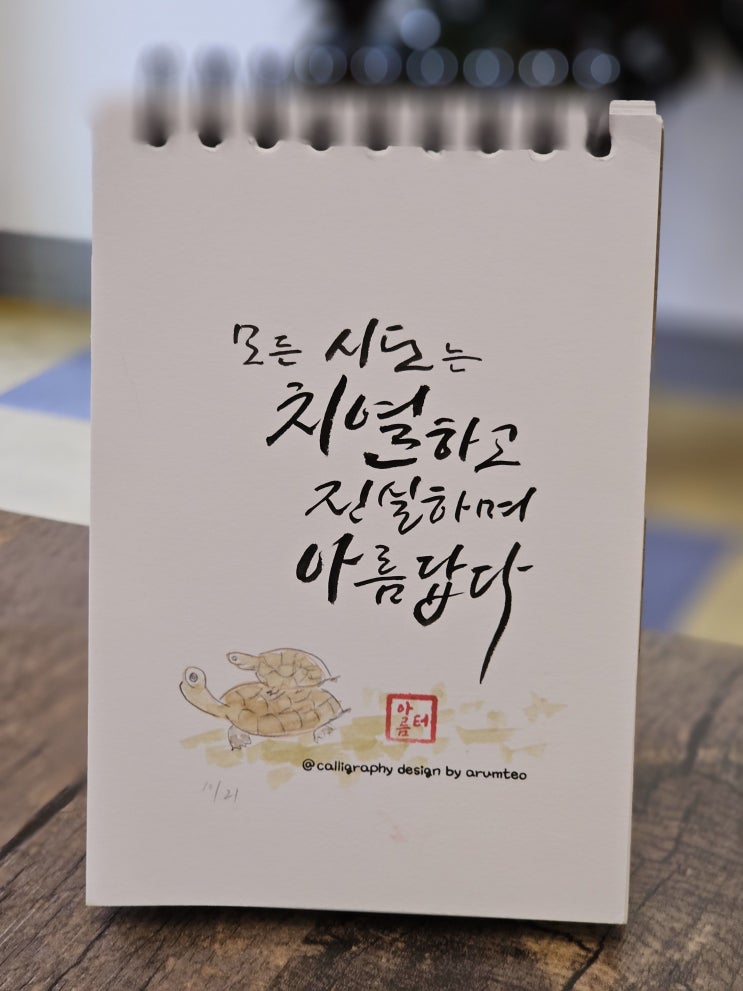 모든 시도는
치열하고
진실하며
아름답다
아름터
@calligraphy design by arumteo
10/21